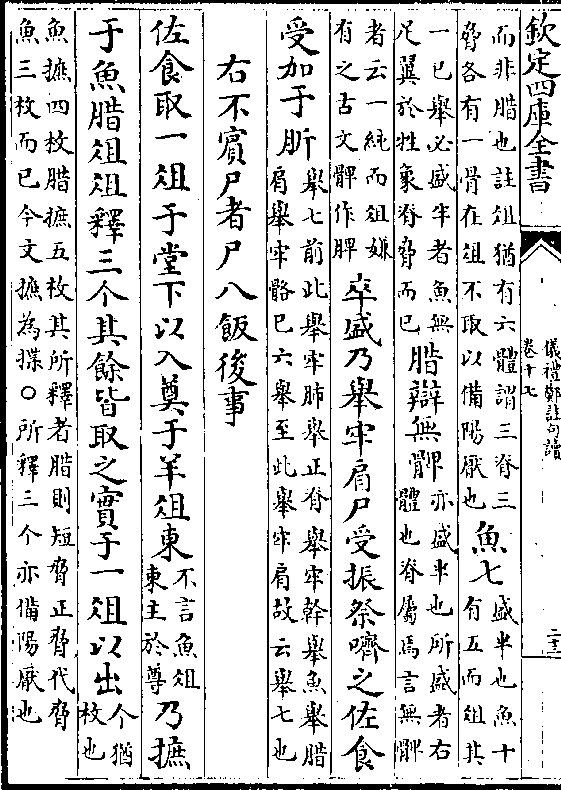 欽定四庫全書
儀禮鄭註句讀
卷十七
二十三
而非腊也註俎猶有六體謂三脊三
脅各有一骨在俎不取以備陽厭也
魚七
盛半也魚十
有五而俎其
一已舉必盛半者魚無
足翼於牲象脊脅而已
腊辯無髀
亦盛半也所盛者右
體也脊屬焉言無髀
者云一純而俎嫌
有之古文髀作脾
卒盛乃舉牢肩尸受振祭嚌之佐食
受加于肵
舉七前此舉牢肺舉正脊舉牢幹舉魚舉腊
肩舉牢骼已六舉至此舉牢肩故云舉七也
右不賓尸者尸八飯後事
佐食取一俎于堂下以入奠于羊俎東
不言魚俎
東主於尊
乃摭
于魚腊俎俎釋三个其餘皆取之實于一俎以出
个猶
枚也
魚摭四枚腊摭五枚其所釋者腊則短脅正脅代脅
魚三枚而已今文摭為揲○所釋三个亦備陽厭也